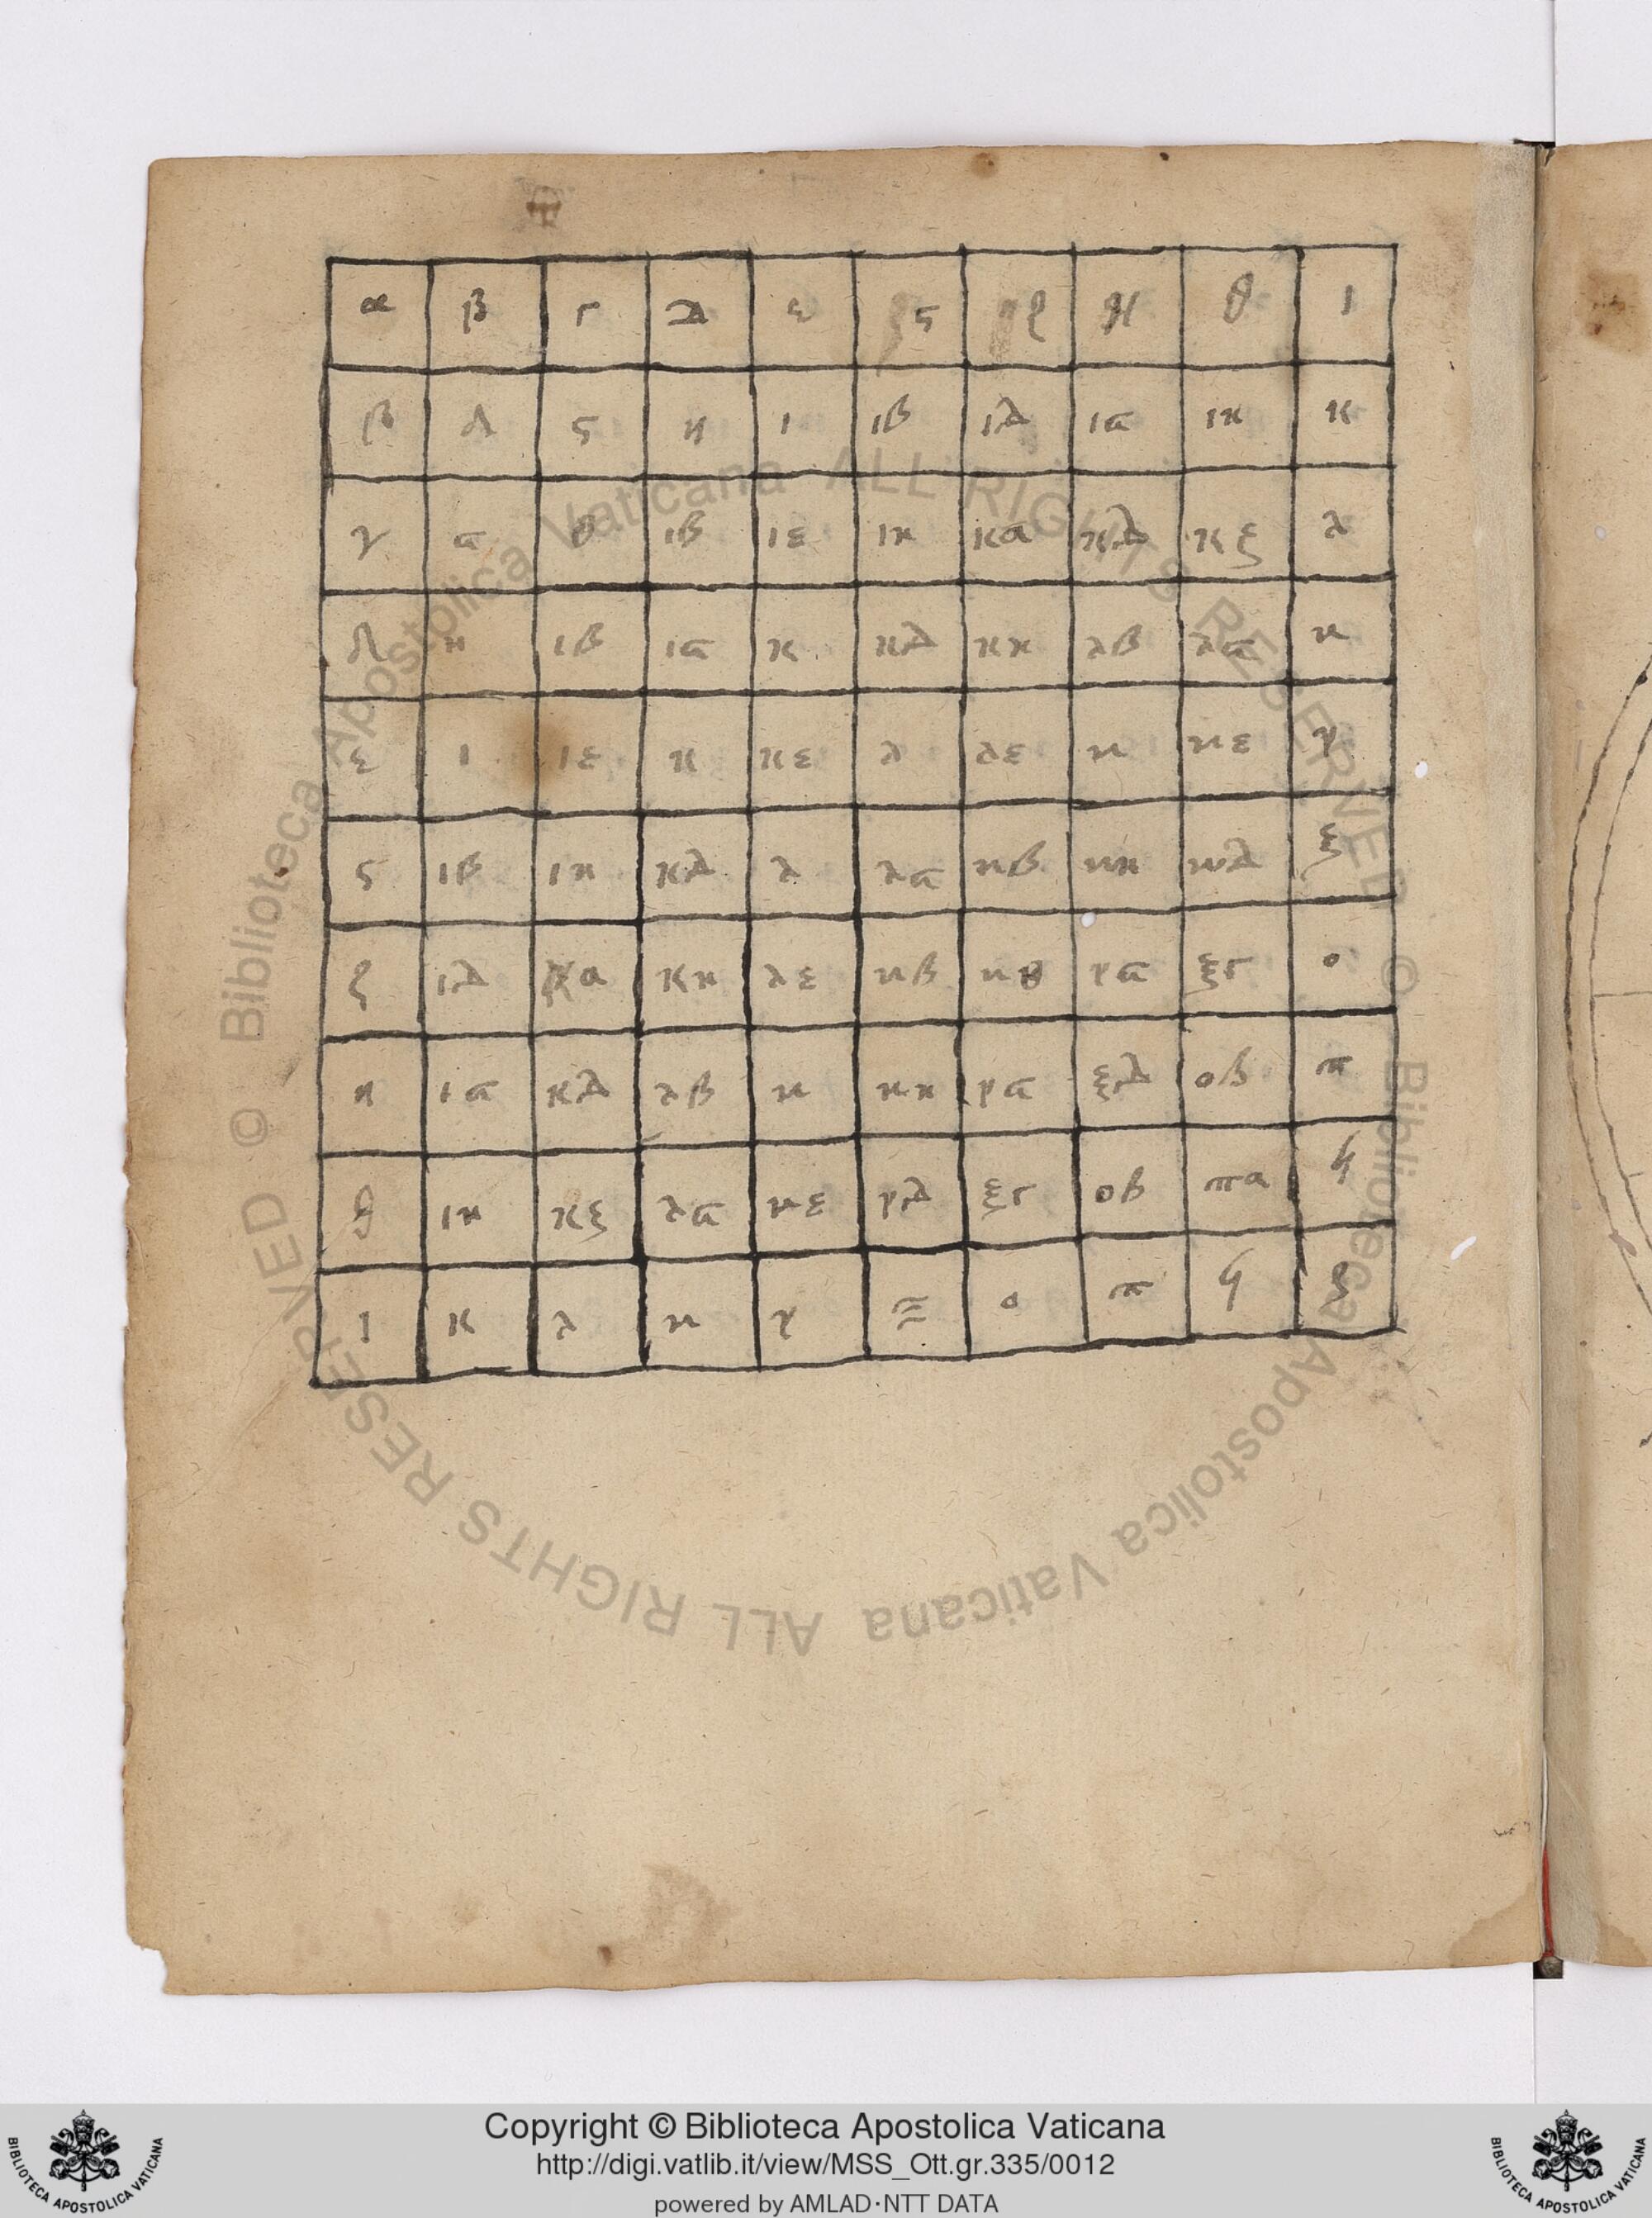 α β γ δ ε ϛ ζ η θ ι
β δ ϛ η ι ιβ ιδ ιϛ ιη κ
γ ϛ θ ιβ ιε ιη κα κδ κζ λ
δ η ιβ ιϛ κ κδ κη λβ λϛ μ
ε ι ιε κ κε λ λε μ με ν
ϛ ιβ ιη κδ λ λϛ μβ μη νδ ξ
ζ ιδ κα κη λε μβ μθ νϛ ξγ ο
η ιϛ κδ λβ μ μη νϛ ξδ οβ π
θ ιη κζ λϛ με νδ ξγ οβ πα ϟ
ι κ λ μ ν ξ ο π ϟ
© Biblioteca Apostolica Vaticana ALL RIGHTS RESERVED © Biblioteca Apostolica Vaticana ALL RIGHTS RESERVED
Copyright © Biblioteca Apostolica Vaticana
http://digi.vatlib.it/view/MSS_Ott.gr.335/0012
powered by AMLAD·NTT DATA
BIBLIOTECA APOSTOLICA VATICANA
BIBLIOTECA APOSTOLICA VATICANA